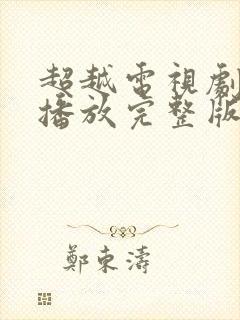 超越電視劇
播放完整版
鄭東濤